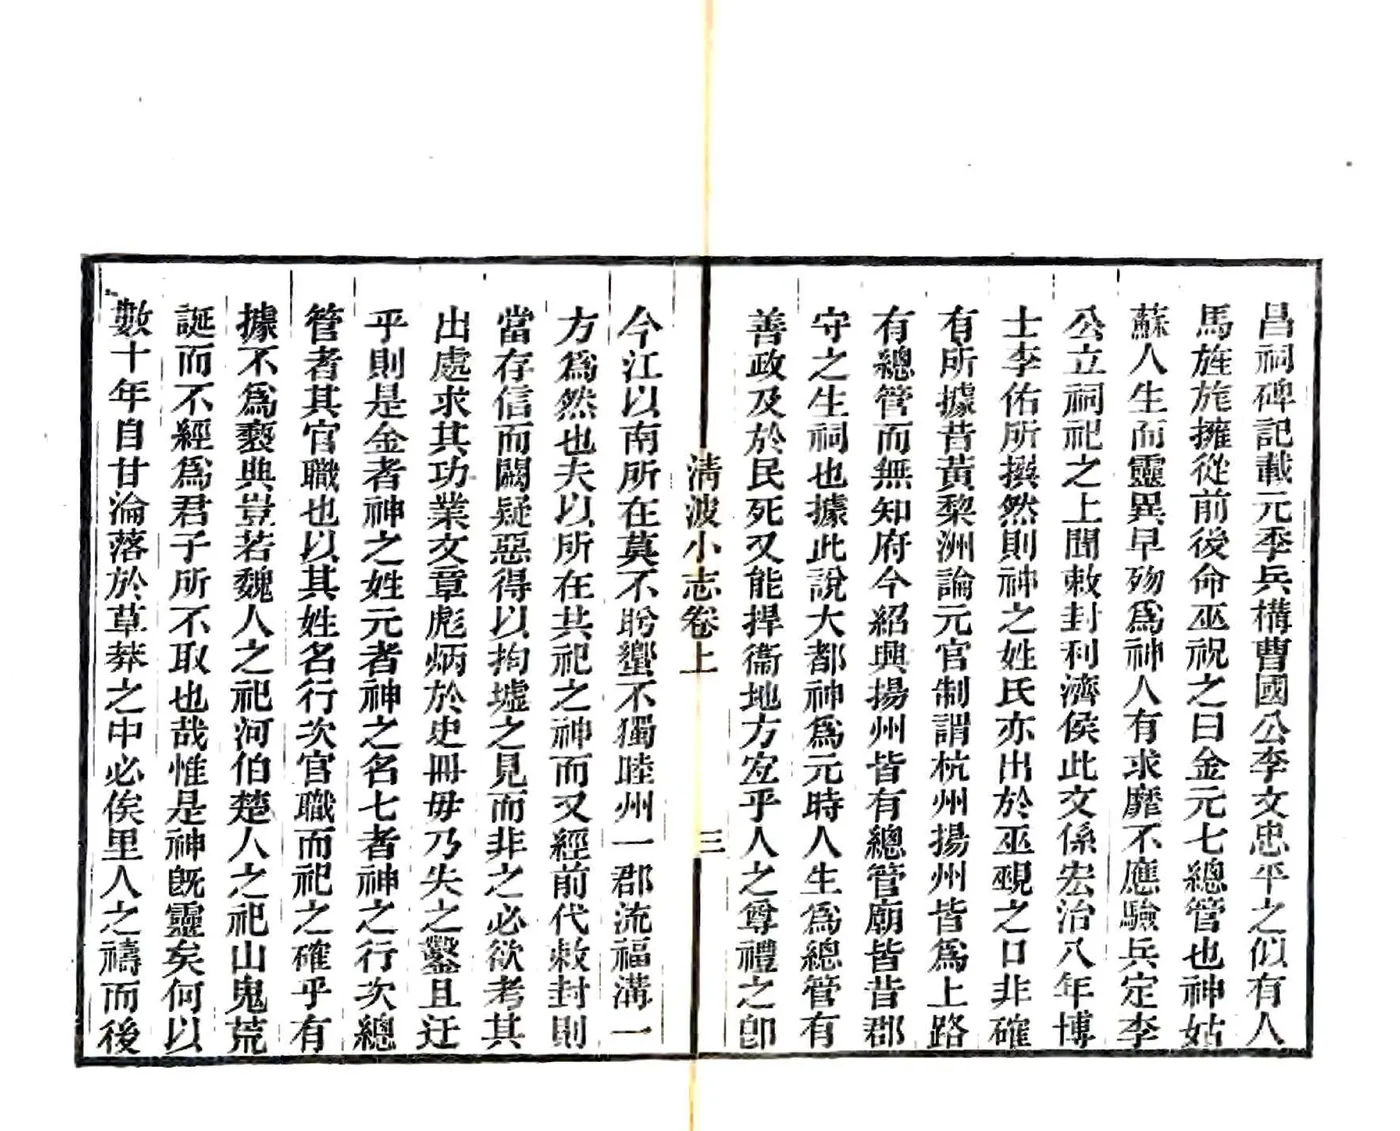 昌祠碑記載元季兵構曹國公李文忠平之似有人
馬旌旄擁從前後命巫祝之曰金元七總管也神姑
蘇人生而靈異早殀為神人有求靡不應驗兵定李
公立祠祀之上聞敕封利濟侯此文係宏治八年博
士李佑所撰然則神之姓氏亦出於巫覡之口非確
有所據昔黃黎洲論元官制謂杭州揚州皆為上路
有總管而無知府今紹興揚州皆有總管廟皆昔郡
守之生祠也據此說大都神為元時人生為總管有
善政及於民死又能捍衞地方宐乎人之尊禮之卽
清波小志卷上
三
今江以南所在莫不肹蠁不獨睦州一郡流福溝一
方為然也夫以所在其祀之神而又經前代敕封則
當存信而闕疑惡得以拘墟之見而非之必欲考其
出處求其功業文章彪炳於史冊毋乃失之鑿且迂
乎則是金者神之姓元者神之名七者神之行次總
管者其官職也以其姓名行次官職而祀之確乎有
據不為褻典豈若魏人之祀河伯楚人之祀山鬼荒
誕而不經為君子所不取也哉惟是神旣靈矣何以
數十年自甘淪落於草莽之中必俟里人之禱而後